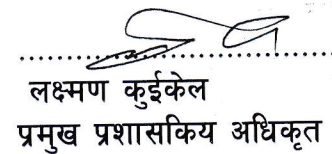 लक्ष्मण कुईकेल
प्रमुख प्रशासकिय अधिकृत